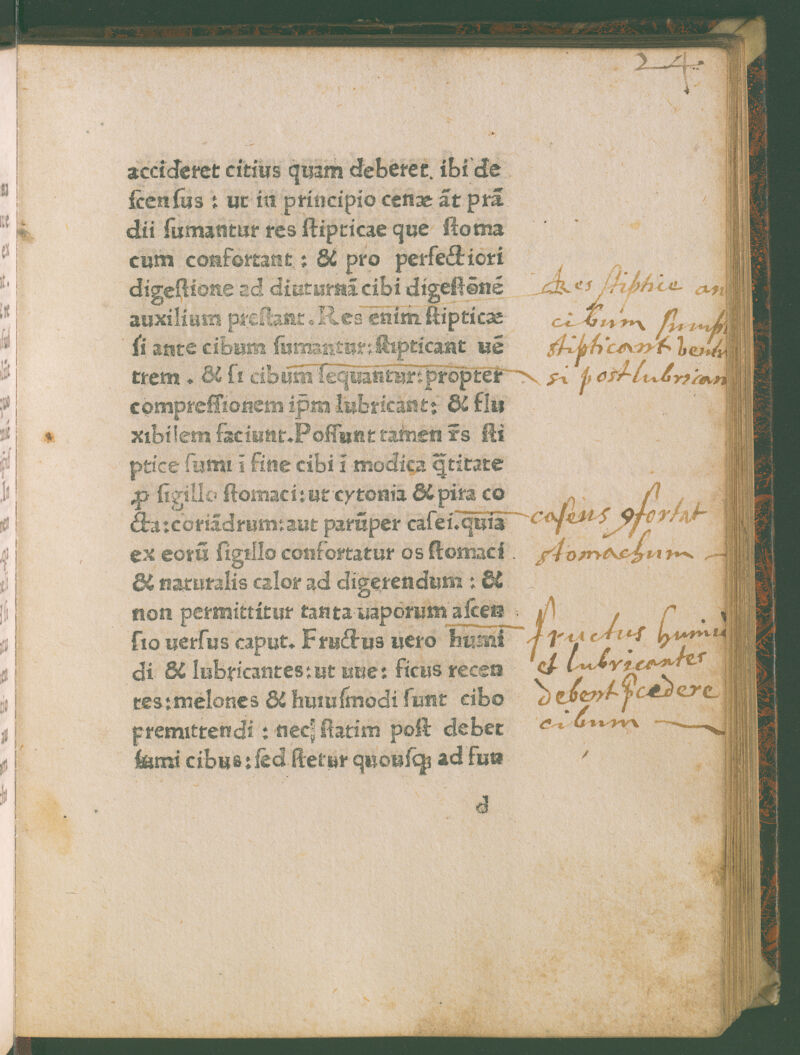 24.
accideret citius quam deberet. ibi de
ſcenſus : ut in principio cenæ āt prā
dii ſumantur res ſtipticae que ſtoma
cum confortant : & pro perfectiori
digeſtione ad diuturnā cibi digeſtōnē
auxilium preſtant. Res enim ſtipticæ
ſi ante cibum ſumantur: ſtipticant uē
trem . & ſi cibum ſequantur: propter
compreſſionem ip̄m lubricant: & flu
xibilem faciunt. Poſſunt tamen r̄s ſti
ptice ſumi ī fine cibi ī modica q̄titate
ꝓ ſigillo ſtomaci: ut cytonia & pira co
cta: coriādrum: aut parūper caſei. quia
ex eorū ſigillo confortatur os ſtomaci .
& naturalis calor ad digerendum : &
non permittitur tanta uaporum aſcen
ſio uerſus caput. Fructus uero humi
di & lubricantes: ut uue: ficus recen
tes: melones & huiuſmodi ſunt cibo
premittendi : necꝫ ſtatim poſt debet
ſumi cibus: ſed ſtetur quouſqꝫ ad ſun
d
Res ſtiptice an
cibum ſumpt
ſtipticant vent
ſi poſt lubrican
caſeus ꝯfortat
ſtomachum
fructus humi
& lubricantes
debent p̄cedere
cibum